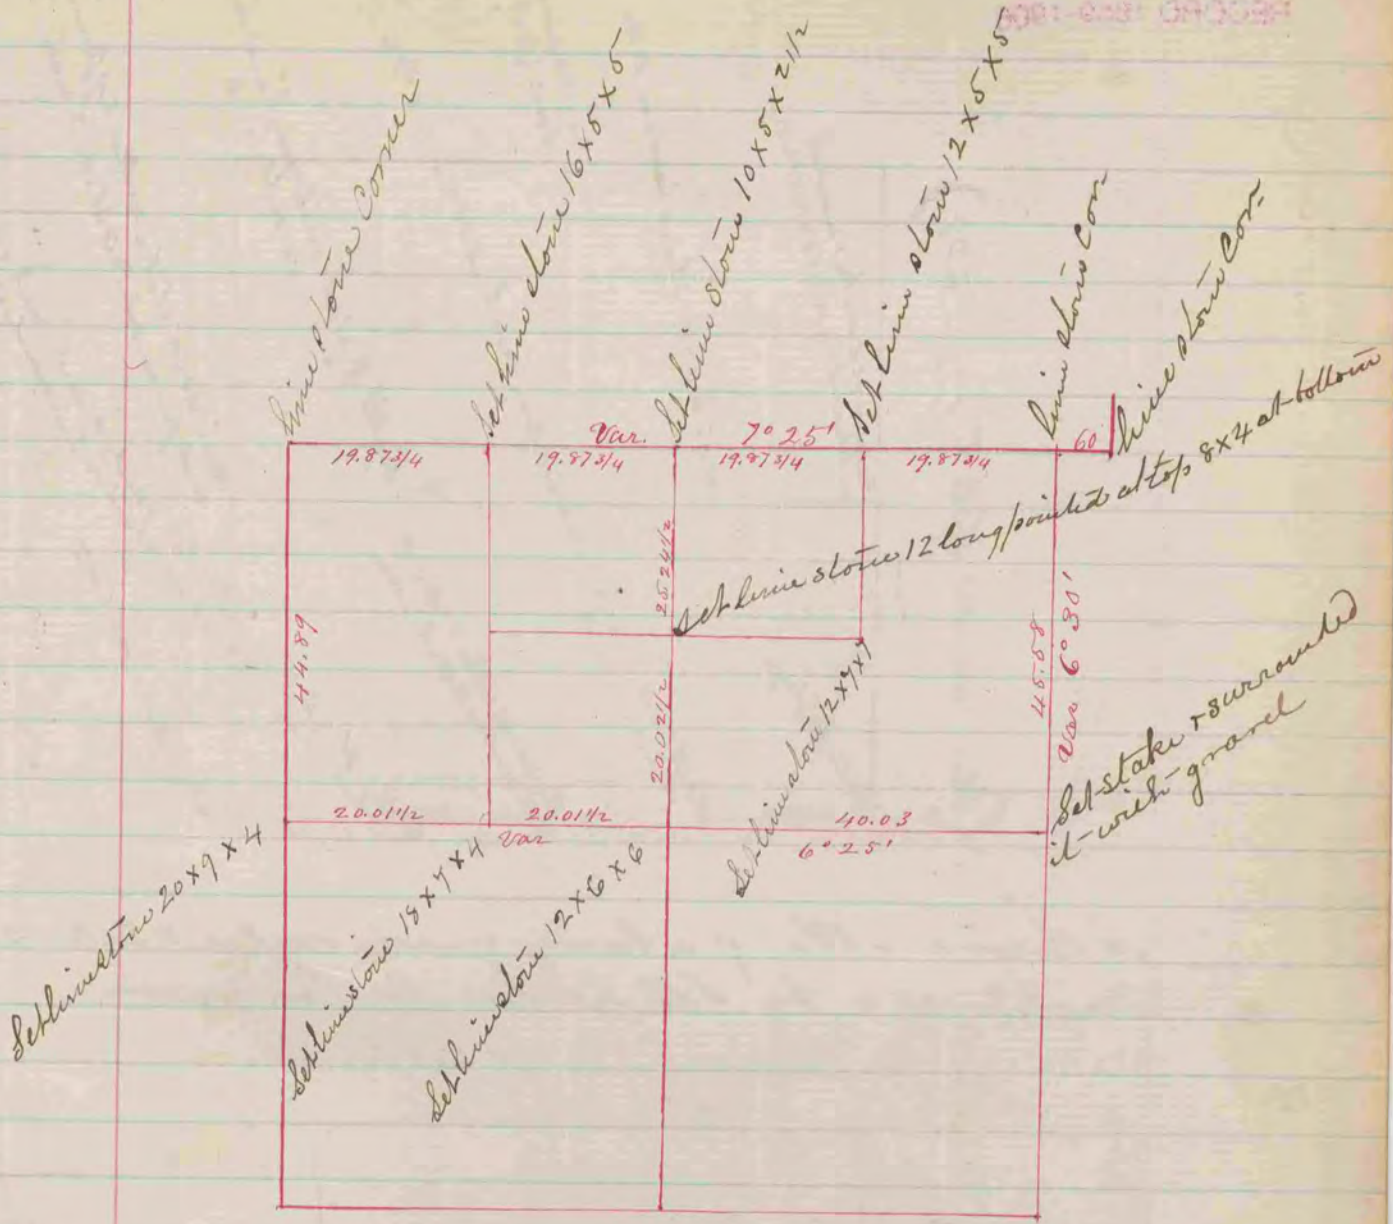 RECORD 1859-1906
Lime stone Corner
Set lime stone 16 x 5 x 5
Set lime stone 10 x 5 x 2 1/2
Set lime stone 12 x 5 x 5
lime stone Cor-
lime stone Cor-
Var. 7° 25'
60
19.87 3/4
19.87 3/4
19.87 3/4
19.87 3/4
Set lime stone 12 long pointed at top 8x4 at bottom
25 24 1/2
44.89
45.58
Var 6° 30'
20.02 1/2
Set lime stone 12 x 7 x 7
Set stake & surrounded
it with gravel
20.01 1/2
20.01 1/2
40.03
Var 6° 25'
Set lime stone 20 x 9 x 4
Set lime stone 18 x 7 x 4
Set lime stone 12 x 6 x 6